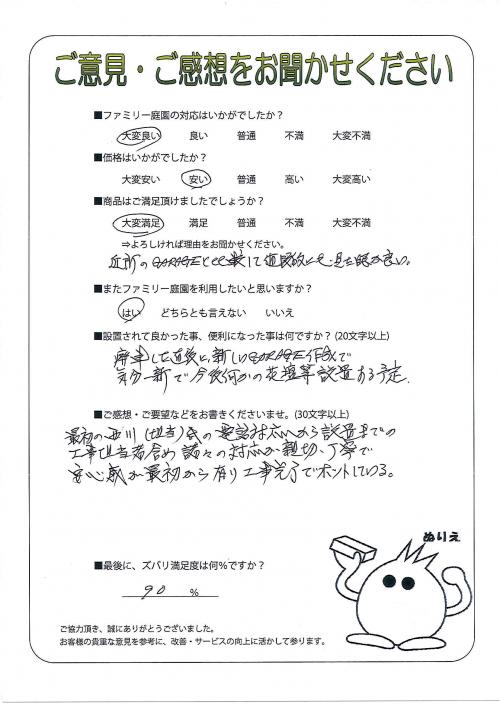 ご意見・ご感想をお聞かせください
■ファミリー庭園の対応はいかがでしたか？
大変良い 良い 普通 不満 大変不満
■価格はいかがでしたか？
大変安い 安い 普通 高い 大変高い
■商品はご満足頂けましたでしょうか？
大変満足 満足 普通 不満 大変不満
⇒よろしければ理由をお聞かせください。
近所のGARAGEと比較して 良い。
■またファミリー庭園を利用したいと思いますか？
はい どちらとも言えない いいえ
■設置されて良かった事、便利になった事は何ですか？(20文字以上)
した直後に、新しいGARAGE で
気分一新で今後何かの花壇等設置する予定。
■ご感想・ご要望などをお書きくださいませ。(30文字以上)
最初の西川（担当）氏の電話対応から設置までの
工事担当者含め諸々の対応が親切、丁寧で
安心感が最初から有り工事完了でホットしている。
ぬりえ
■最後に、ズバリ満足度は何％ですか？
90 ％
ご協力頂き、誠にありがとうございました。
お客様の貴重な意見を参考に、改善・サービスの向上に活かして参ります。